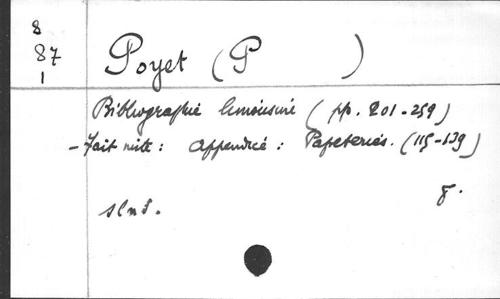 8
87
1
Poyet (P )
Bibliographie limousine (pp. 201-259)
- Fait suite : Appendice : Papeteries. (115-139)
8.
s l n d.